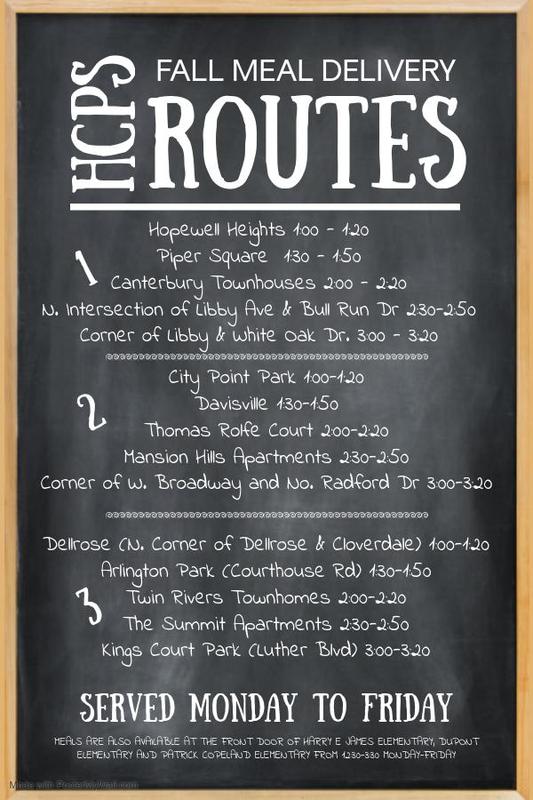 HCPS
FALL MEAL DELIVERY
ROUTES
1
Hopewell Heights 1:00 - 1:20
Piper Square 1:30 - 1:50
Canterbury Townhouses 2:00 - 2:20
N. Intersection of Libby Ave & Bull Run Dr 2:30-2:50
Corner of Libby & White Oak Dr. 3:00 - 3:20
2
City Point Park 1:00-1:20
Davisville 1:30-1:50
Thomas Rolfe Court 2:00-2:20
Mansion Hills Apartments 2:30-2:50
Corner of W. Broadway and No. Radford Dr 3:00-3:20
3
Dellrose (N. Corner of Dellrose & Cloverdale) 1:00-1:20
Arlington Park (Courthouse Rd) 1:30-1:50
Twin Rivers Townhomes 2:00-2:20
The Summit Apartments 2:30-2:50
Kings Court Park (Luther Blvd) 3:00-3:20
SERVED MONDAY TO FRIDAY
MEALS ARE ALSO AVAILABLE AT THE FRONT DOOR OF HARRY E JAMES ELEMENTARY, DUPONT
ELEMENTARY AND PATRICK COPELAND ELEMENTARY FROM 12:30-3:30 MONDAY-FRIDAY
Made with PosterMyWall.com